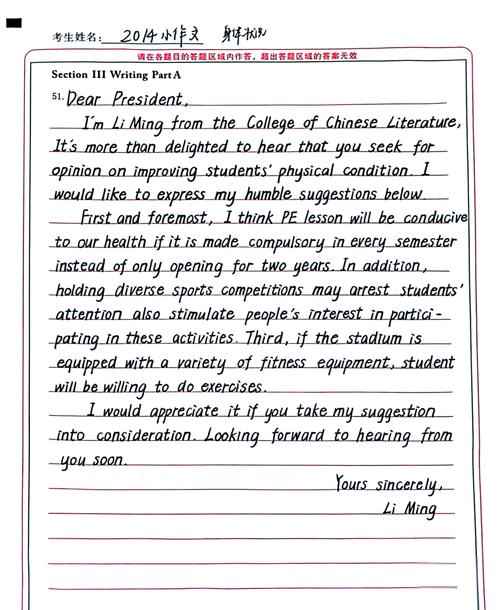 考生姓名: 2014小作文 身体状况
请在各题目的答题区域内作答，超出答题区域的答案无效
Section III Writing Part A
51. Dear President,
I'm Li Ming from the College of Chinese Literature,
It's more than delighted to hear that you seek for
opinion on improving students' physical condition. I
would like to express my humble suggestions below.
First and foremost, I think PE lesson will be conducive
to our health if it is made compulsory in every semester
instead of only opening for two years. In addition,
holding diverse sports competitions may arrest students'
attention also stimulate people's interest in partici-
pating in these activities. Third, if the stadium is
equipped with a variety of fitness equipment, student
will be willing to do exercises.
I would appreciate it if you take my suggestion
into consideration. Looking forward to hearing from
you soon.
Yours sincerely,
Li Ming